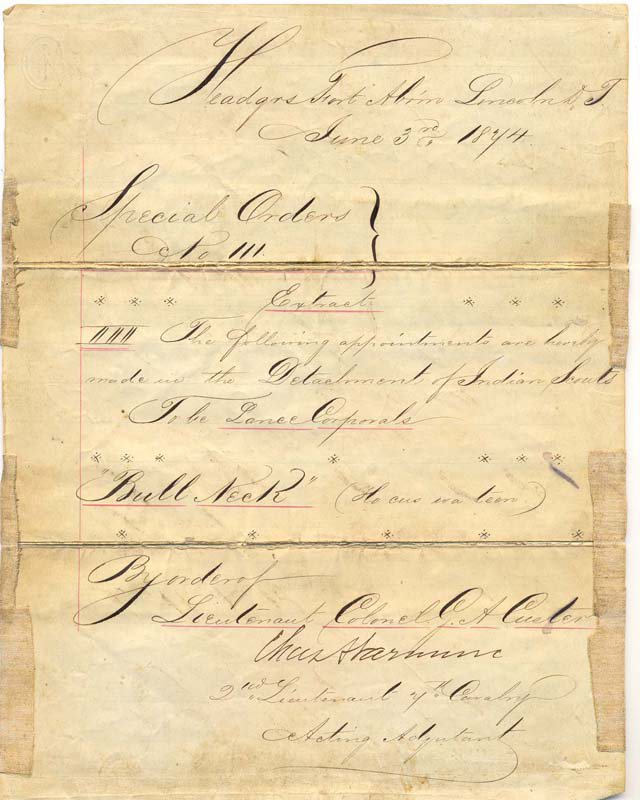 Headqrs Fort Abrm Lincoln D. T.
June 3rd, 1874.
Special Orders
No 111.
Extract
III The following appointments are hereby
made in the Detachment of Indian Scouts
To be Lance Corporals
"Bull Neck" (Ho cus wa teer.)
By order of
Lieutenant Colonel G. A Custer
Chas
2nd Lieutenant 7th Cavalry
Acting Adjutant